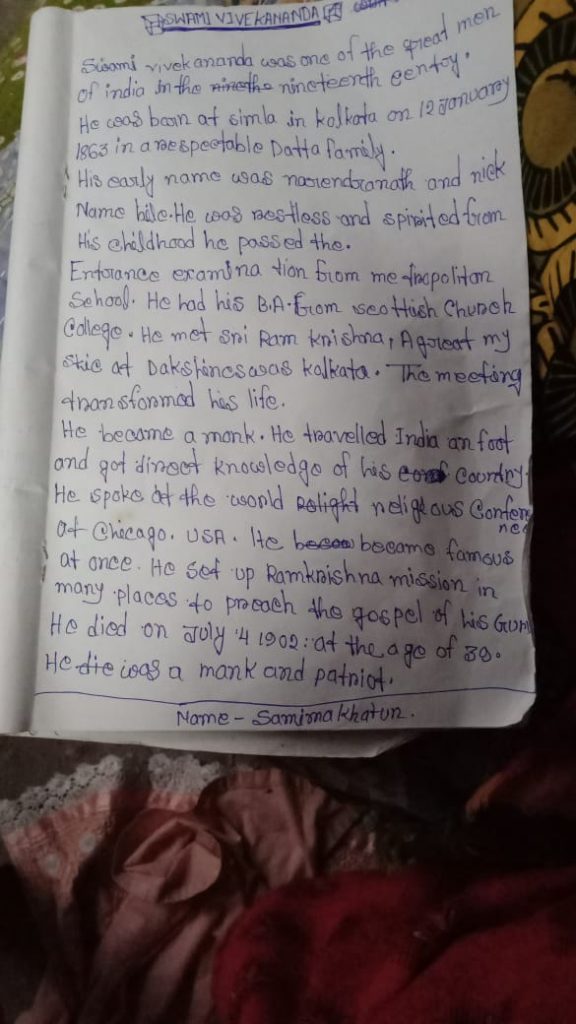 SWAMI VIVEKANANDA
Swami vivekananda was one of the great men
of india in the ninethe nineteenth centoy.
He was born at simla in kolkata on 12 January
1863 in a respectable Datta family.
His early name was narendranath and nick
Name bile. He was restless and spirited from
His childhood he passed the.
Entorance examina tion from me tropolitan
School. He had his B.A. From scottish Church
College. He met sri Ram krishna, A great my
stic at Dakshineswas kalkata. The meeting
transformed his life.
He became a monk. He travelled India an foot
and got direct knowledge of his country.
He spoke at the world relight religious Conferen
nce
at Chicago. USA. He became famous
at once. He set up Ramkrishna mission in
many places to preach the gospel of his Guru
He died on July 4 1902: at the age of 39.
He die was a mank and patriot.
Name - Samima khatun.